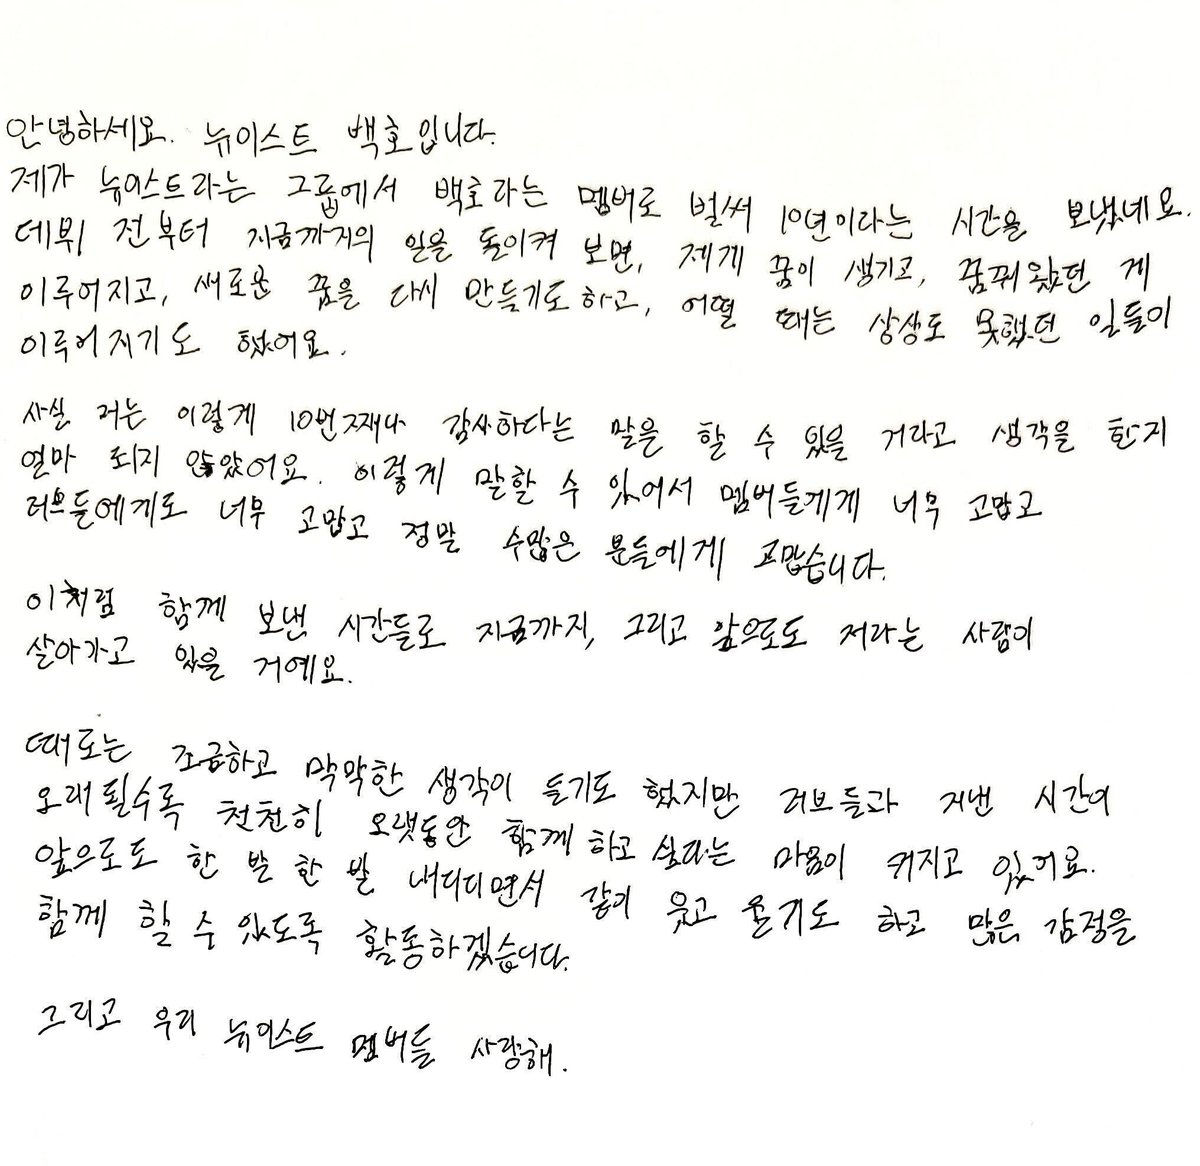 안녕하세요. 뉴이스트 백호입니다.
제가 뉴이스트라는 그룹에서 백호라는 멤버로 벌써 10년이라는 시간을 보냈네요.
데뷔 전부터 지금까지의 일을 돌이켜 보면, 제게 꿈이 생기고, 꿈꿔왔던 게
이루어지고, 새로운 꿈을 다시 만들기도하고, 어떨 때는 상상도 못했던 일들이
이루어지기도 했어요.
사실 저는 이렇게 10번째나 감사하다는 말을 할 수 있을 거라고 생각을 한지
얼마 되지 않았어요. 이렇게 말할 수 있어서 멤버들에게 너무 고맙고
러브들에게도 너무 고맙고 정말 수많은 분들에게 고맙습니다.
이처럼 함께 보낸 시간들로 지금까지, 그리고 앞으로도 저라는 사람이
살아가고 있을 거예요.
때로는 조급하고 막막한 생각이 들기도 했지만 러브들과 지낸 시간이
오래될수록 천천히 오랫동안 함께하고 싶다는 마음이 커지고 있어요.
앞으로도 한 발 한 발 내디디면서 같이 웃고 울기도 하고 많은 감정을
함께 할 수 있도록 활동하겠습니다.
그리고 우리 뉴이스트 멤버들 사랑해.